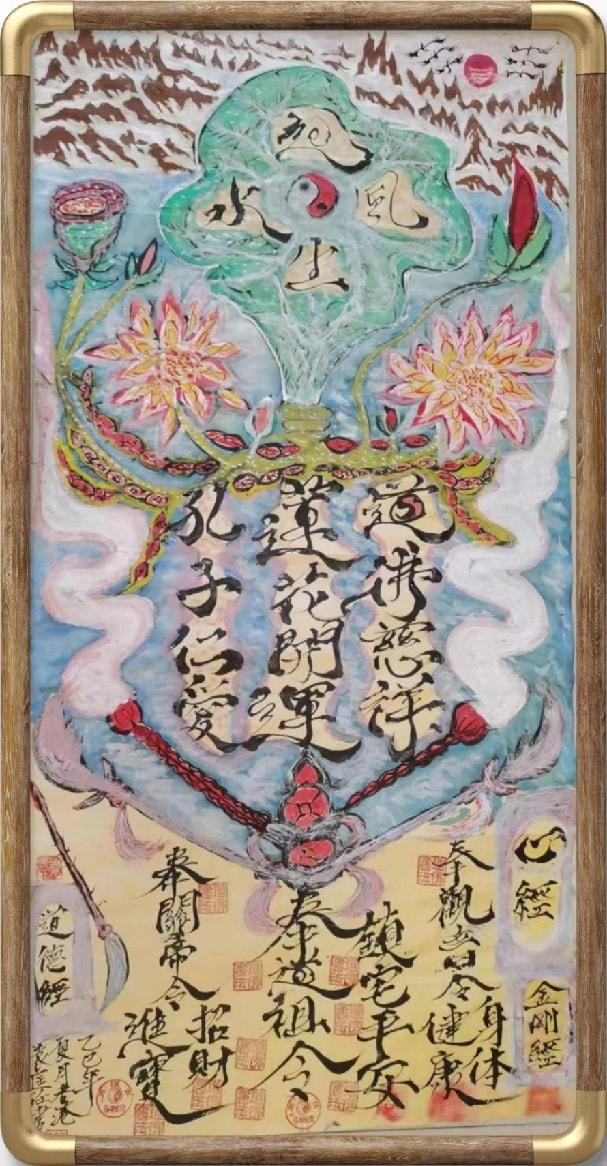 道佛慈祥
蓮花開運
孔子仁愛
風
水
生
起
心經
金剛經
奉觀音令
身体健康
鎮宅平安
奉道祖令
奉關帝令
招財進寶
道德經
乙巳年
夏月香港